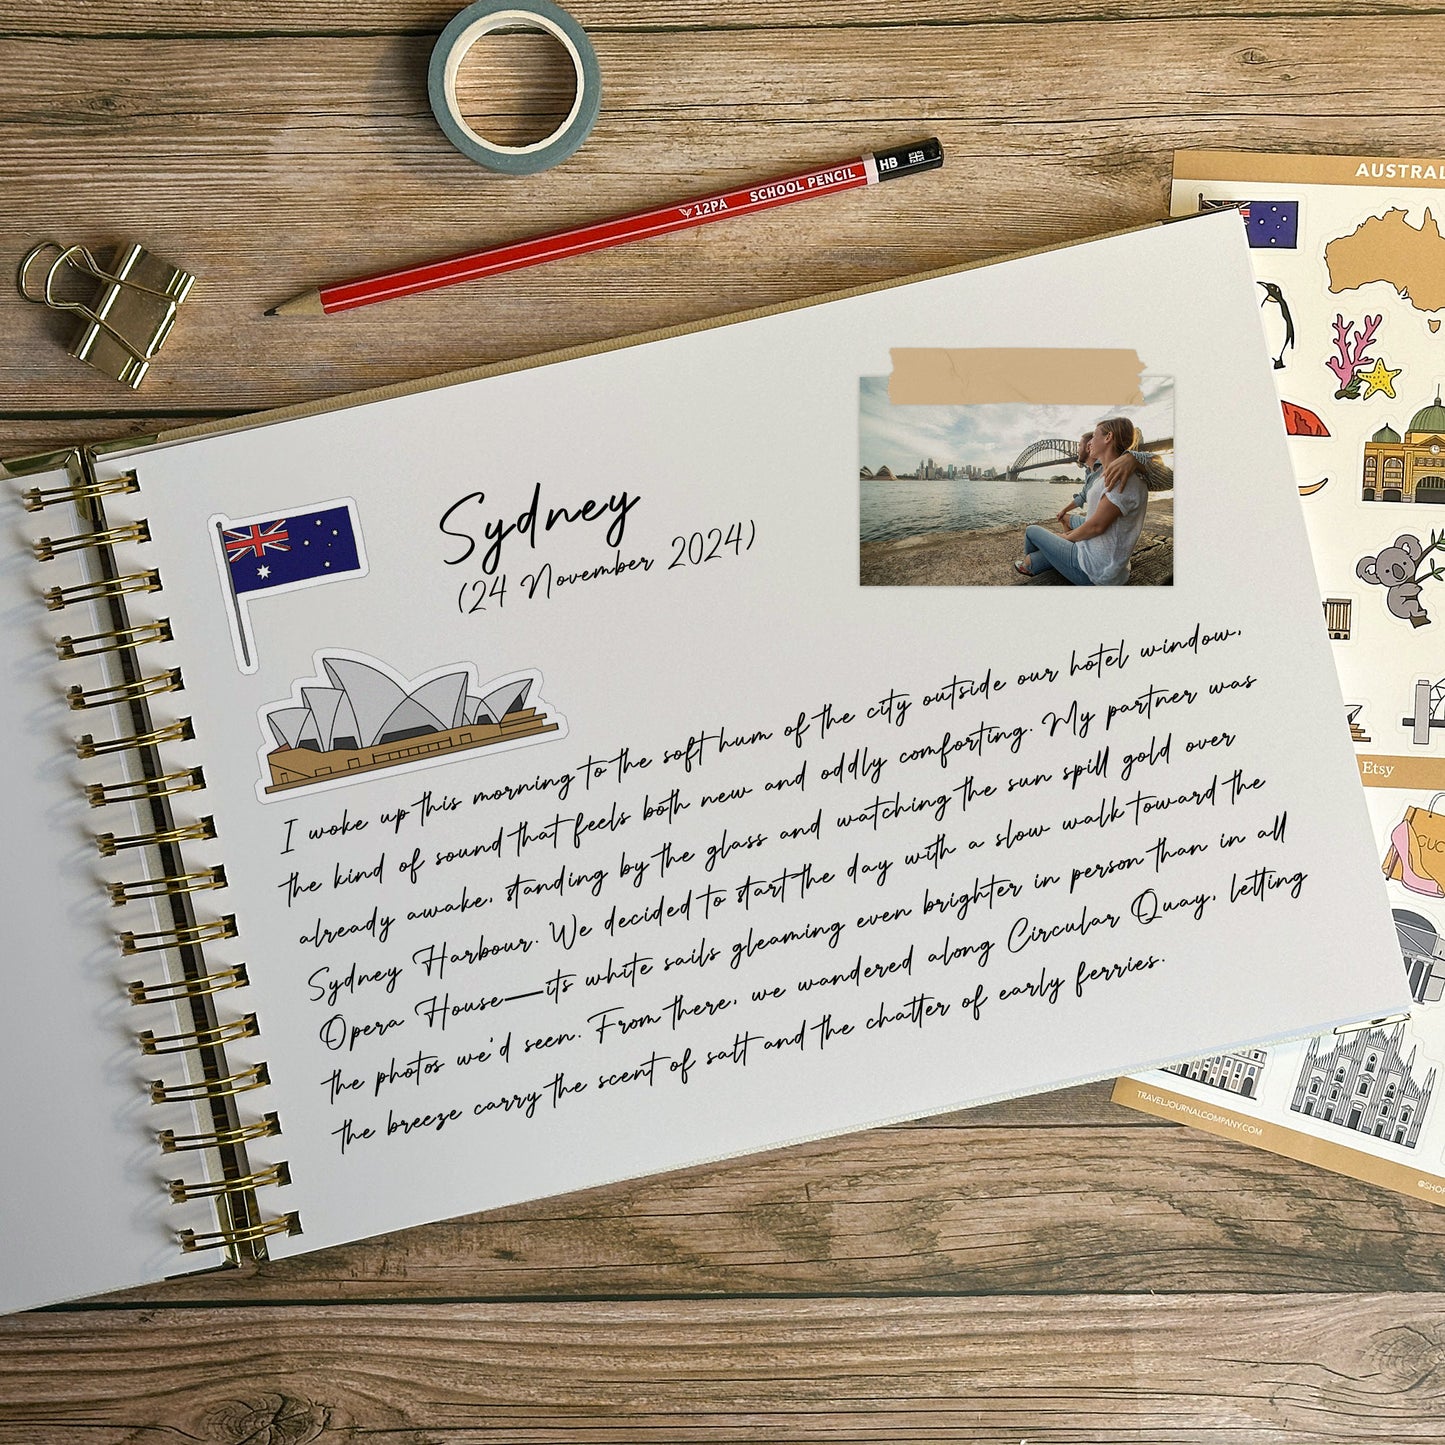 12PA SCHOOL PENCIL HB
AUSTRAL
Sydney
(24 November 2024)
I woke up this morning to the soft hum of the city outside our hotel window,
the kind of sound that feels both new and oddly comforting. My partner was
already awake, standing by the glass and watching the sun spill gold over
Sydney Harbour. We decided to start the day with a slow walk toward the
Opera House—its white sails gleaming even brighter in person than in all
the photos we'd seen. From there, we wandered along Circular Quay, letting
the breeze carry the scent of salt and the chatter of early ferries.
Etsy
GUC
TRAVELJOURNALCOMPANY.COM
@SHO